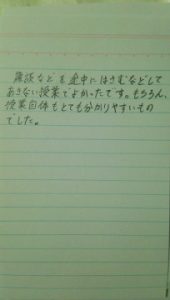 雑談なども途中にはさむなどして
あきない授業でよかったです。もちろん、
授業自体もとても分かりやすいもの
でした。